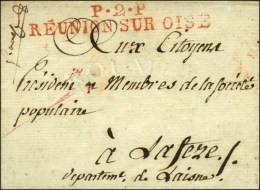 P.2.P
RÉUNION SUR OISE
Aux Citoyens
Président & Membres de la société
populaire
à Lafere /.
departmt. de Laisne